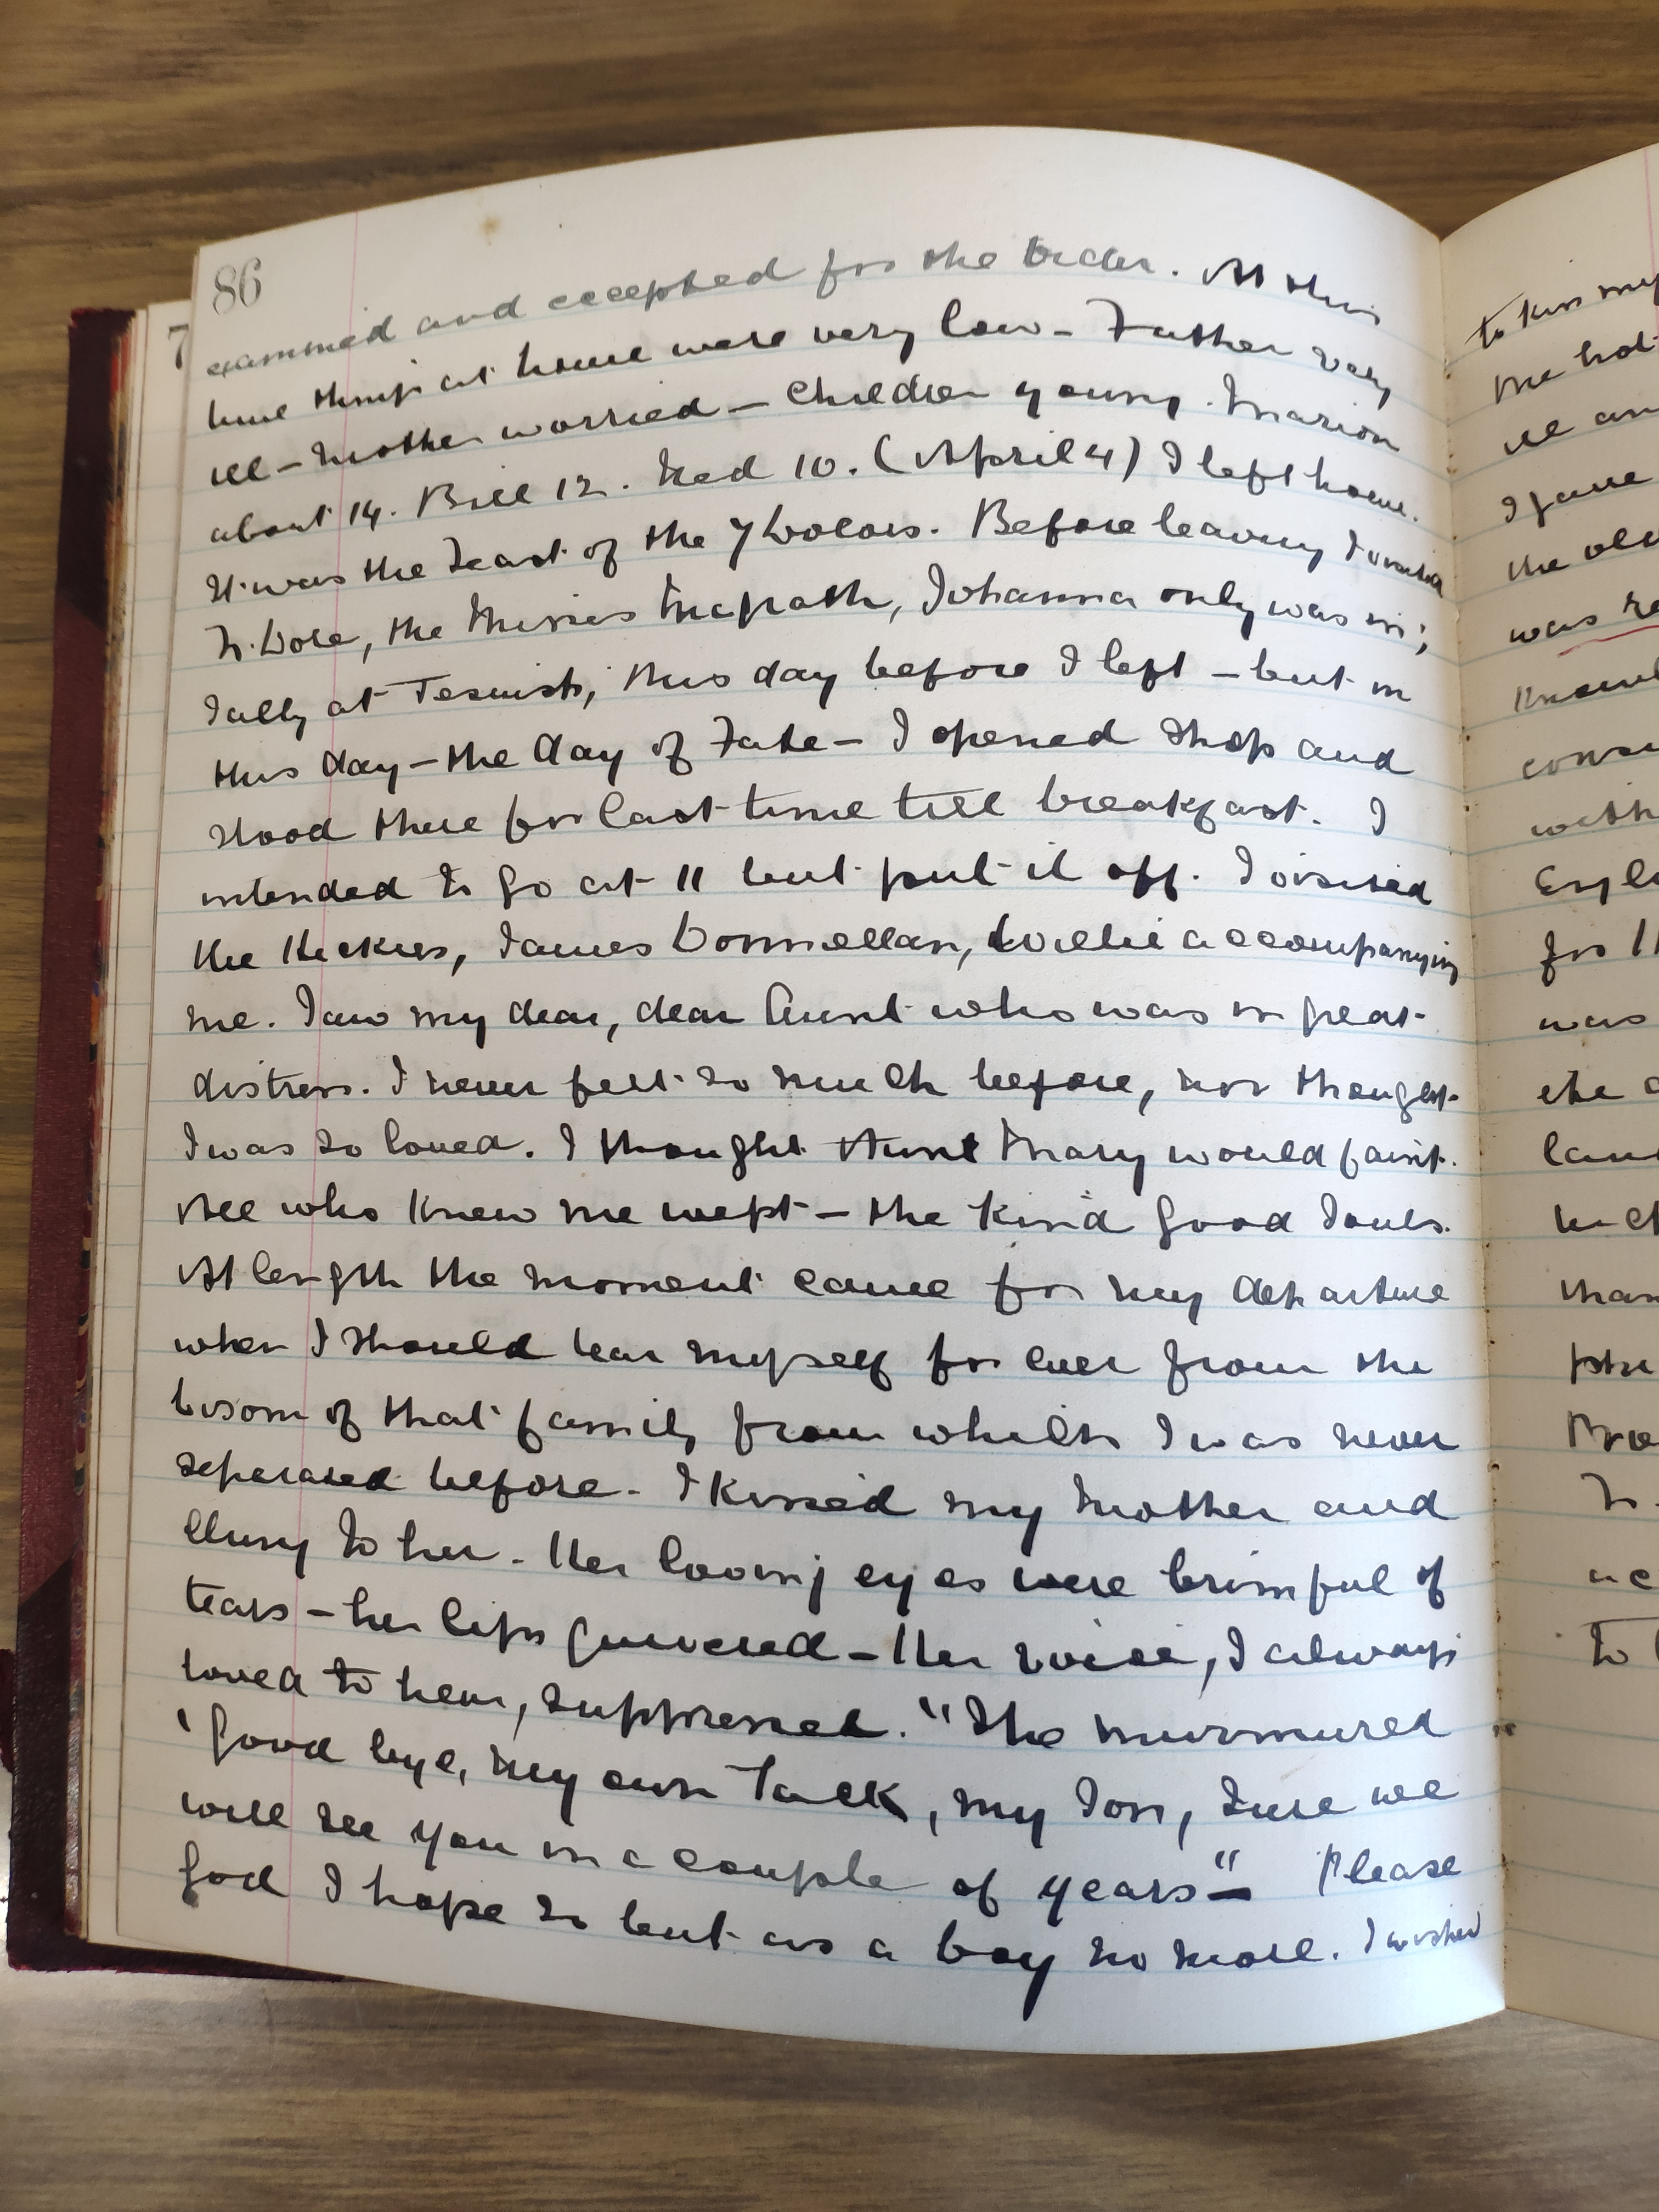 86
examined and accepted for the Order. At this
time things at home were very low - Father very
ill - Mother worried - Children young. Marion
about 14. Bill 12. Ned 10. (April 4) I left home.
It was the Feast of the 7 Dolors. Before leaving I visited
Fr. Dore, the Misses McGrath, Johanna only was in;
Sally at Jesuits, this day before I left - but on
this day - the day of Fate - I opened shop and
stood there for last time till breakfast. I
intended to go at 11 but put it off. I visited
the Hickies, James Donnellan, Willie accompanying
me. Saw my dear, dear Aunt who was in great
distress. I never felt so much before, nor thought
I was so loved. I thought Aunt Mary would faint.
All who knew me wept - the kind good souls.
At length the moment came for my departure
when I should tear myself for ever from the
bosom of that family from which I was never
separated before. I kissed my Mother and
clung to her. Her loving eyes were brimful of
tears - her lips quivered - Her voice, I always
loved to hear, suppressed. "She murmured
'Good bye, my own Jack, my son, sure we
will see you in a couple of years" - Please
God I hope so but as a boy no more. I wished
7
to kiss my
the hot
ill an
I gave
the old
was re
with
for
was
the
to